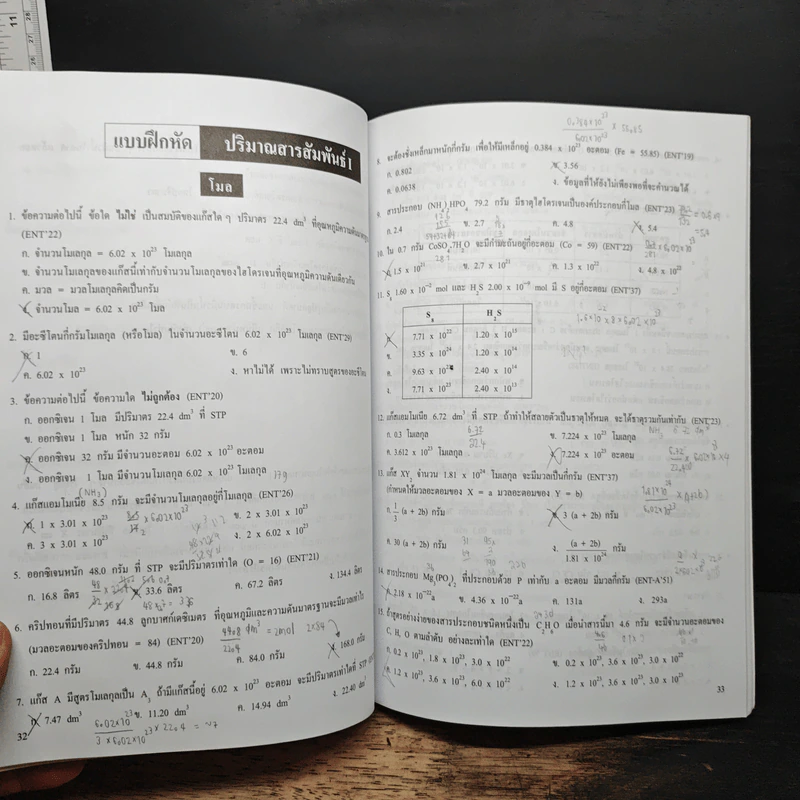 แบบฝึกหัด ปริมาณสารสัมพันธ์ 1
โมล
1. ข้อความต่อไปนี้ ข้อใด ไม่ใช่ เป็นสมบัติของแก๊สใด ๆ ปริมาตร 22.4 dm³ ที่อุณหภูมิความดัน
(ENT'22)
ก. จำนวนโมเลกุล = 6.02 x 10²³ โมเลกุล
ข. จำนวนโมเลกุลของแก๊สนี้เท่ากับจำนวนโมเลกุลของไฮโดรเจนที่อุณหภูมิความดันเดียวกัน
ค. มวล = มวลโมเลกุลคิดเป็นกรัม
ง. จำนวนโมเลกุล = 6.02 x 10²³ โมล
2. มีอะซิโตนกี่กรัมโมเลกุล (หรือโมล) ในจำนวนอะซีโตน 6.02 x 10²³ โมเลกุล (ENT'29)
ก. 1 ข. 6
ค. 6.02 x 10²³ ง. หาไม่ได้ เพราะไม่ทราบสูตรของอะซีโตน
3. ข้อความต่อไปนี้ ข้อความใด ไม่ถูกต้อง (ENT'20)
ก. ออกซิเจน 1 โมล มีปริมาตร 22.4 dm³ ที่ STP
ข. ออกซิเจน 1 โมล หนัก 32 กรัม
ค. ออกซิเจน 32 กรัม มีจำนวนอะตอม 6.02 x 10²³ อะตอม
ง. ออกซิเจน 1 โมล มีจำนวนโมเลกุล 6.02 x 10²³ โมเลกุล 17g
(NH₃)
4. แก๊สแอมโมเนีย 8.5 กรัม จะมีจำนวนโมเลกุลอยู่กี่โมเลกุล (ENT'26)
ก. 1 x 3.01 x 10²³ ข. 2 x 3.01 x 10²³
ค. 3 x 3.01 x 10²³ ง. 2 x 6.02 x 10²³
5. ออกซิเจนหนัก 48.0 กรัม ที่ STP จะมีปริมาตรเท่าใด (O = 16) (ENT'21)
ก. 16.8 ลิตร ข. 33.6 ลิตร ค. 67.2 ลิตร ง. 134.4 ลิตร
6. คริปทอนที่มีปริมาตร 44.8 ลูกบาศก์เดซิเมตร ที่อุณหภูมิและความดันมาตรฐานจะมีมวลเท่าใด
(มวลอะตอมของคริปทอน = 84) (ENT'20)
ก. 22.4 กรัม ข. 44.8 กรัม ค. 84.0 กรัม ง. 168.0 กรัม
7. แก๊ส A มีสูตรโมเลกุลเป็น A₃ ถ้ามีแก๊สนี้อยู่ 6.02 x 10²³ อะตอม จะมีปริมาตรเท่าใดที่ STP
ก. 7.47 dm³ ข. 11.20 dm³ ค. 14.94 dm³ ง. 22.40 dm³
32
8. จะต้องชั่งเหล็กมาหนักกี่กรัม เพื่อให้มีเหล็กอยู่ 0.384 x 10²³ อะตอม (Fe = 55.85) (ENT'19)
ก. 0.802 ข. 3.56
ค. 0.0638 ง. ข้อมูลที่ให้ยังไม่เพียงพอที่จะคำนวณได้
9. สารประกอบ (NH₄)₂HPO₄ 79.2 กรัม มีธาตุไฮโดรเจนเป็นองค์ประกอบกี่โมล (ENT'23)
ก. 2.4 ข. 2.7 ค. 4.8 ง. 5.4
10. ใน 0.7 กรัม CoSO₄.7H₂O จะมีกำมะถันอยู่กี่อะตอม (Co = 59) (ENT'22)
ก. 1.5 x 10²¹ ข. 2.7 x 10²¹ ค. 1.3 x 10²² ง. 4.8 x 10²²
11. S₈ 1.60 x 10⁻² mol และ H₂S 2.00 x 10⁻⁹ mol มี S อยู่กี่อะตอม (ENT'37)
S₈ H₂S
ก. 7.71 x 10²² 1.20 x 10¹⁵
ข. 3.35 x 10²⁴ 1.20 x 10¹⁴
ค. 9.63 x 10²⁴ 2.40 x 10¹⁴
ง. 7.71 x 10²³ 2.40 x 10¹⁵
12. แก๊สแอมโมเนีย 6.72 dm³ ที่ STP ถ้าทำให้สลายตัวเป็นธาตุให้หมด จะได้ธาตุรวมกันเท่ากับ (ENT'23)
ก. 0.3 โมเลกุล ข. 7.224 x 10²³ โมเลกุล
ค. 3.612 x 10²³ โมเลกุล ง. 7.224 x 10²³ อะตอม
13. แก๊ส XY₂ จำนวน 1.81 x 10²⁴ โมเลกุล จะมีมวลเป็นกี่กรัม (ENT'37)
(กำหนดให้มวลอะตอมของ X = a มวลอะตอมของ Y = b)
ก. 1/3 (a + 2b) กรัม ข. 3 (a + 2b) กรัม
ค. 30 (a + 2b) กรัม ง. (a + 2b) / 1.81 x 10²⁴ กรัม
14. สารประกอบ Mg₃(PO₄)₂ ที่ประกอบด้วย P เท่ากับ a อะตอม มีมวลกี่กรัม (ENT-A'51)
ก. 2.18 x 10⁻²²a ข. 4.36 x 10⁻²²a ค. 131a ง. 293a
15. ถ้าสูตรอย่างง่ายของสารประกอบชนิดหนึ่งเป็น C₂H₆O เมื่อนำสารนี้มา 4.6 กรัม จะมีจำนวนอะตอมของ
C, H, O ตามลำดับ อย่างละเท่าใด (ENT'22)
ก. 0.2 x 10²³, 1.8 x 10²³, 3.0 x 10²² ข. 0.2 x 10²³, 3.6 x 10²³, 3.0 x 10²²
ค. 1.2 x 10²³, 3.6 x 10²³, 6.0 x 10²² ง. 1.2 x 10²³, 3.6 x 10²³, 3.0 x 10²³
33